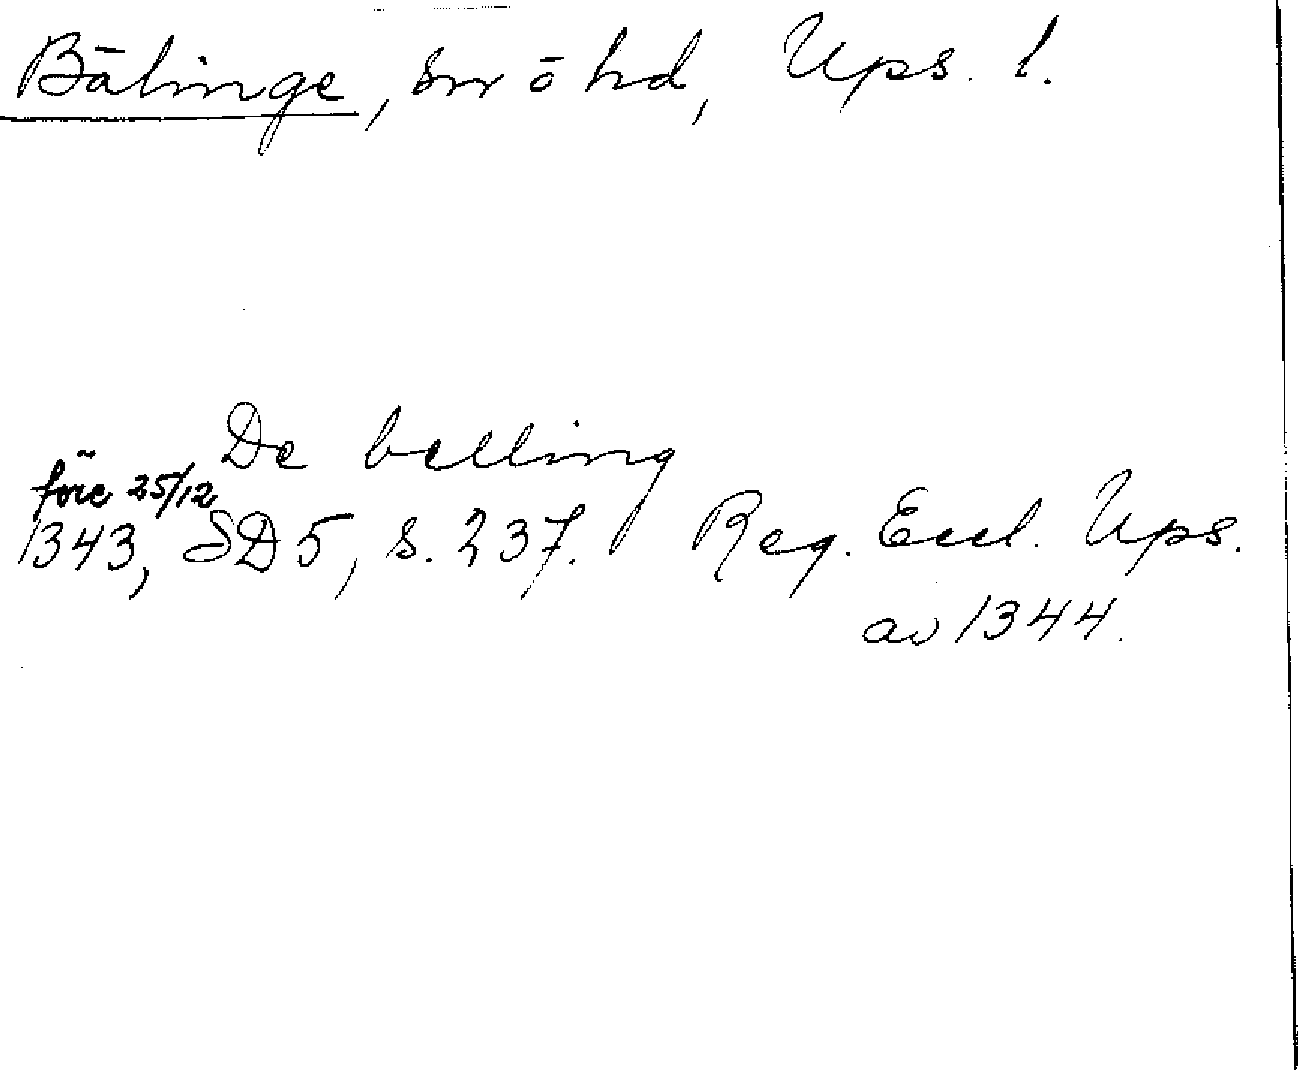 Bälinge, sn o hd, Ups. l.
De belling
före 25/12
1343, SD 5, s. 237. Reg. Eccl. Ups.
av 1344.